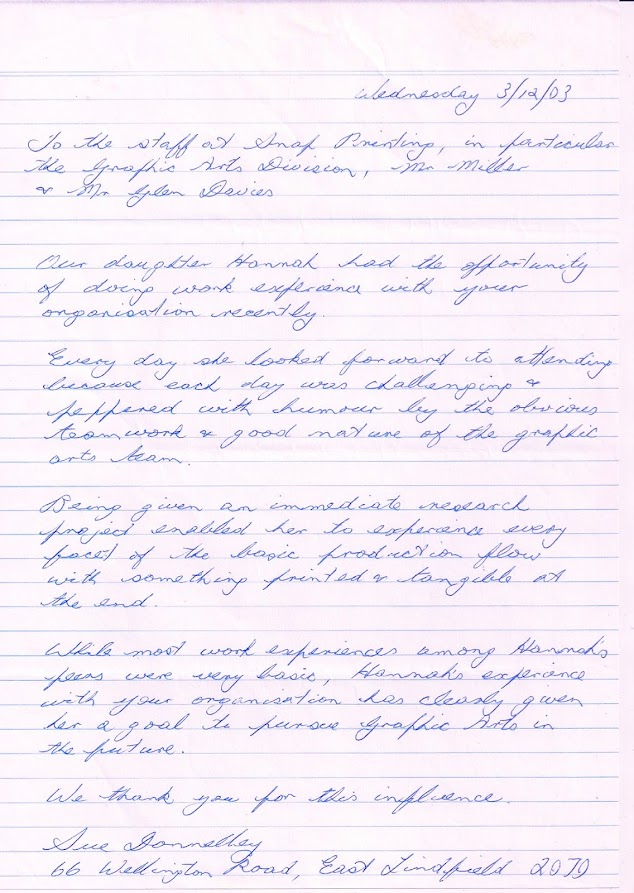 Wednesday 3/12/03
To the staff at Snap Printing, in particular
the Graphic Arts Division, Mr Miller
& Mr Glen Davies
Our daughter Hannah had the opportunity
of doing work experience with your
organisation recently.
Every day she looked forward to attending
because each day was challenging &
peppered with humour by the obvious
teamwork & good nature of the graphic
arts team.
Being given an immediate research
project enabled her to experience every
facet of the basic production flow
with something printed & tangible at
the end.
While most work experiences among Hannah's
peers were very basic, Hannah's experience
with your organisation has clearly given
her a goal to pursue Graphic Arts in
the future.
We thank you for this influence.
Sue Donnelley
66 Wellington Road, East Lindfield 2070